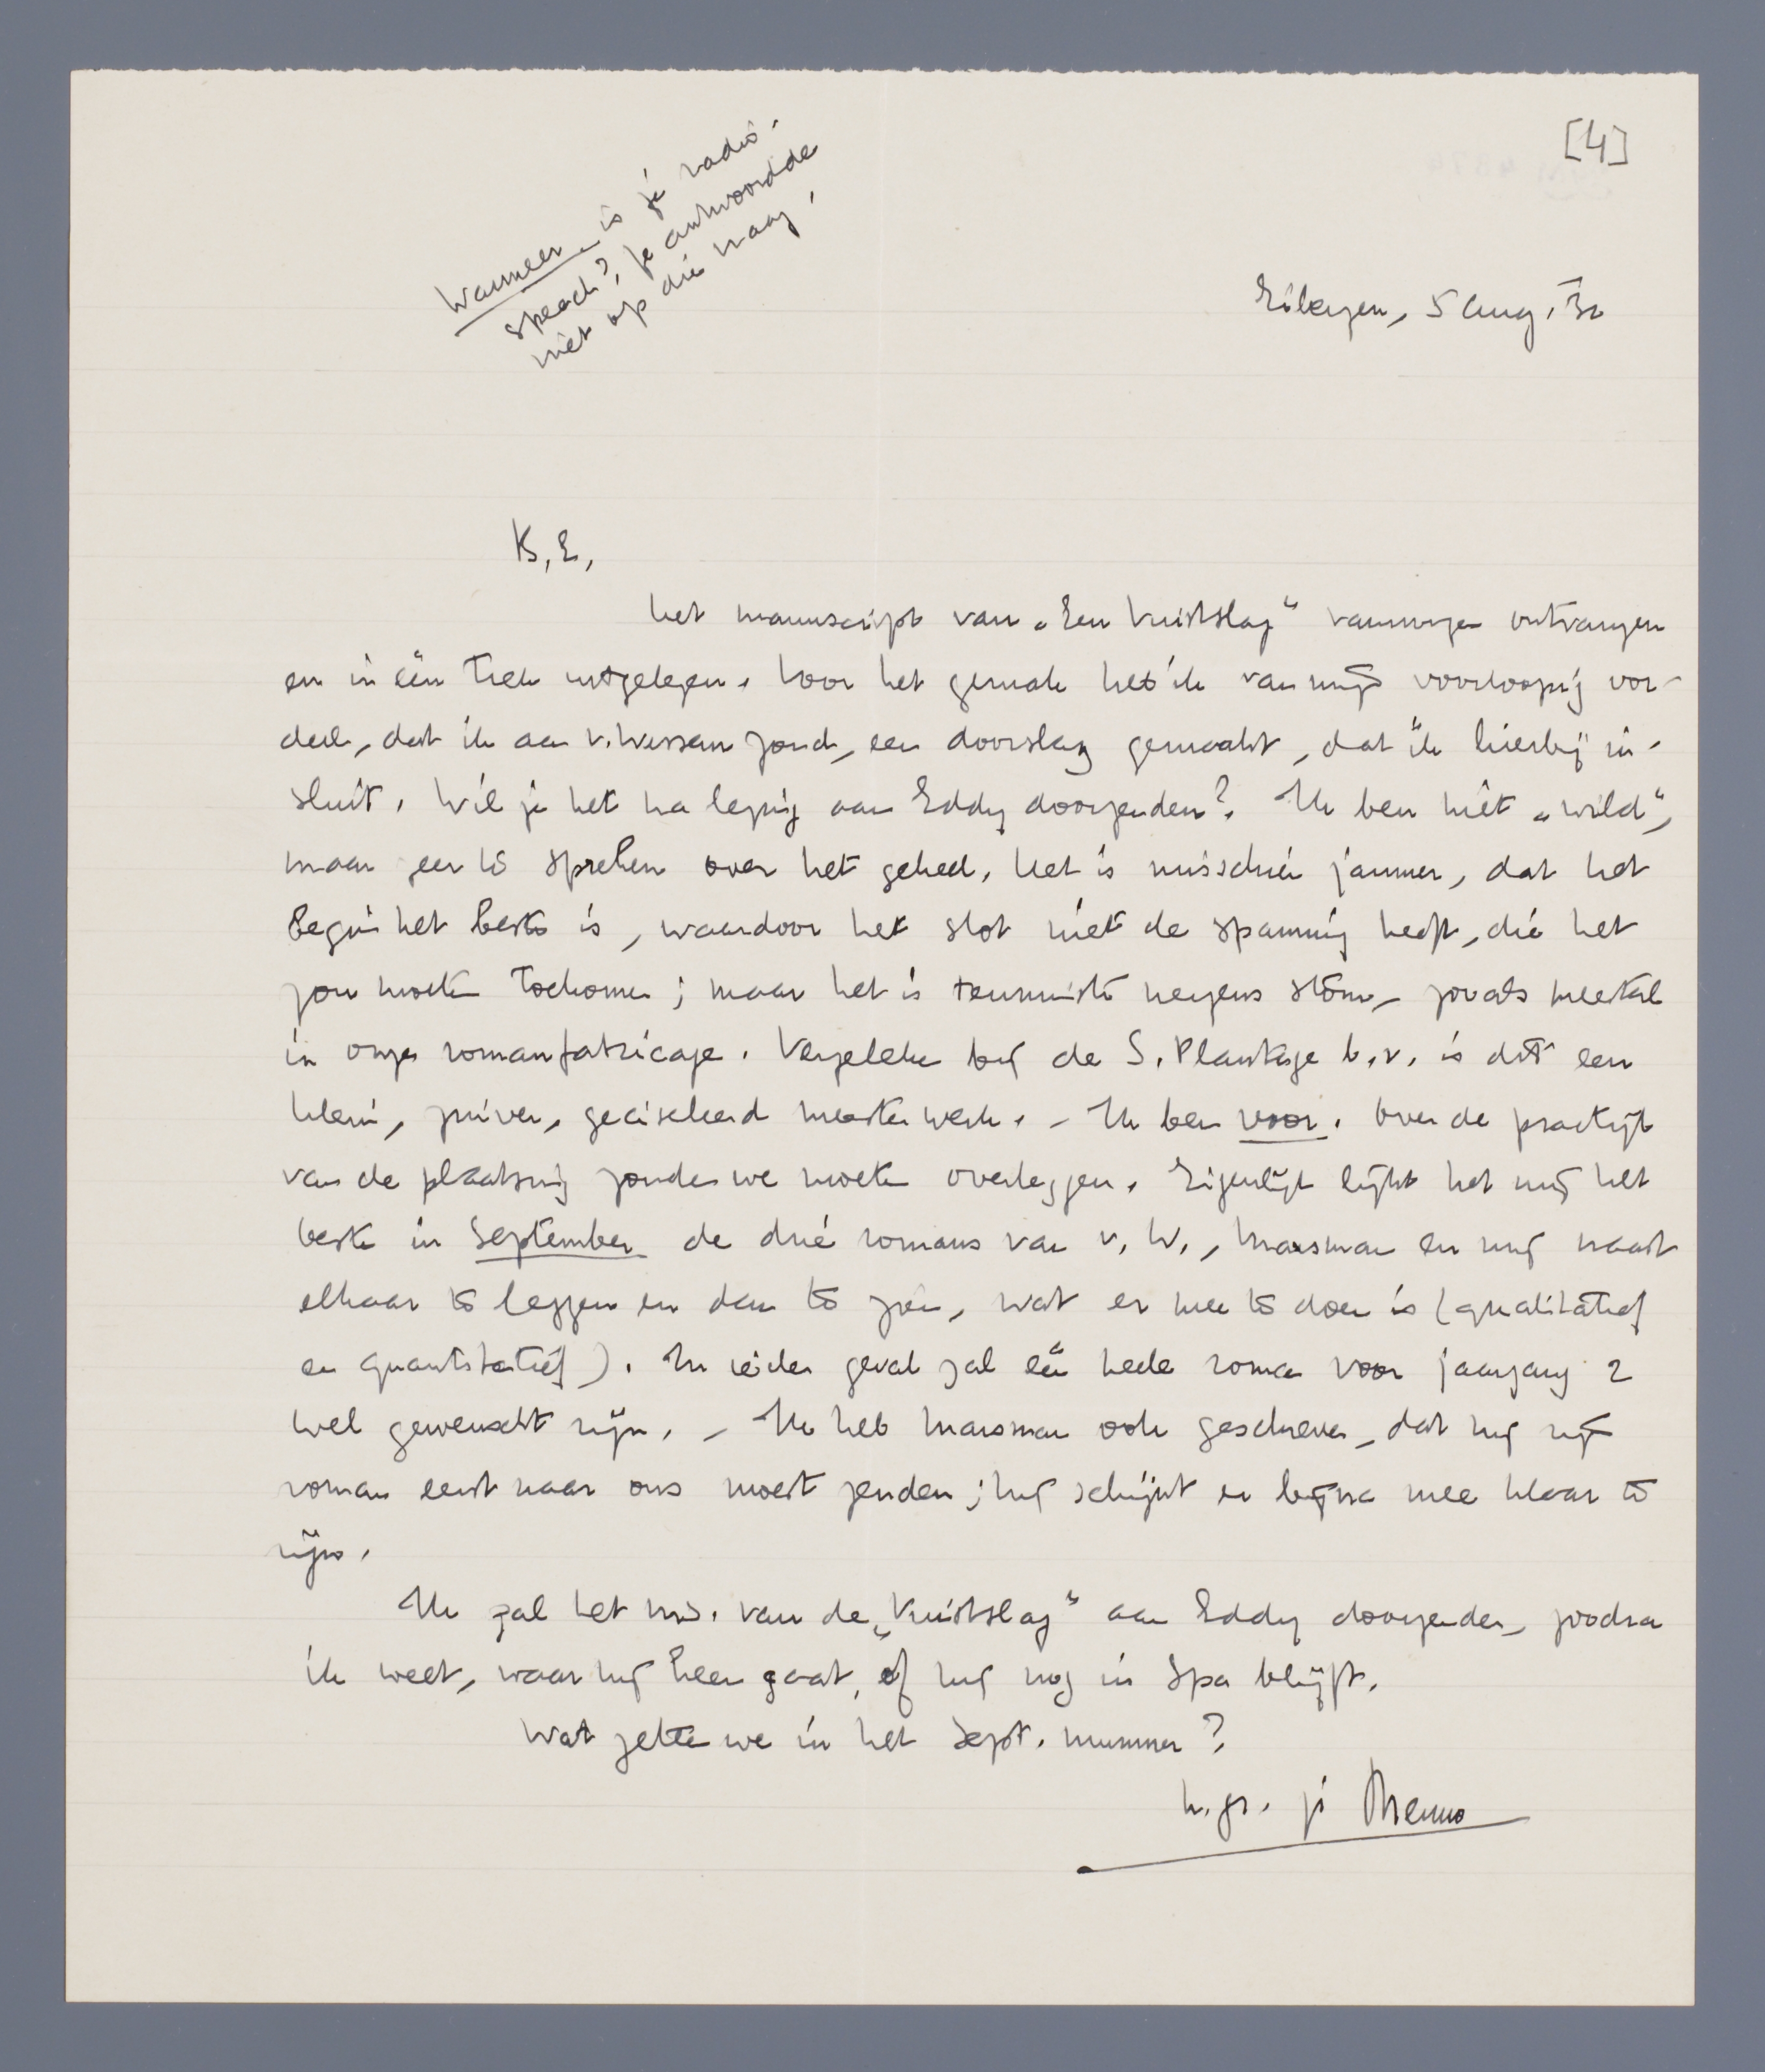 [4]
Wanneer is je radio-
speach? Je antwoordde
niet op die vraag!
Eibergen, 5 Aug. '32
B, E,
het manuscript van „Een Vuistslag" vanmorgen ontvangen
en in één trek uitgelezen. Voor het gemak heb ik van mijn voorloopig oor-
deel, dat ik aan v. Wessem zond, een doorslag gemaakt, dat ik hierbij in-
sluit. Wil je het na lezing aan Eddy doorzenden? Ik ben niet „wild",
maar zeer te spreken over het geheel. Het is misschien jammer, dat het
begin het beste is, waardoor het slot niet de spanning heeft, die het
zou moeten toekomen; maar het is tenminste nergens stom, zooals meestal
in onze romanfabricage. Vergeleken bij de S. Plantage b.v. is dit een
klein, zuiver, geciseleerd meesterwerk. - Ik ben voor. Over de practijk
van de plaatsing zouden we moeten overleggen. Eigenlijk lijkt het mij het
beste in September de drie romans van v. W., Marsman en mij naast
elkaar te leggen en dan te zien, wat er mee te doen is (qualitatief
en quantitatief). In ieder geval zal één heele roman voor jaargang 2
wel gewenscht zijn. - Ik heb Marsman ook geschreven, dat hij zijn
roman eerst naar ons moest zenden; hij schijnt er bijna mee klaar te
zijn.
Ik zal het ms. van de „Vuistslag" aan Eddy doorzenden, zoodra
ik weet, waar hij heen gaat, of hij nog in Spa blijft.
Wat zetten we in het Sept. nummer?
h. gr. je Menno